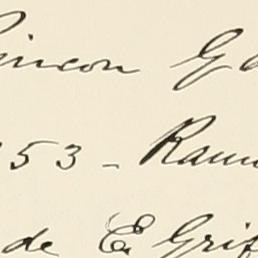 incon G
53 - Raun
de E. Grif